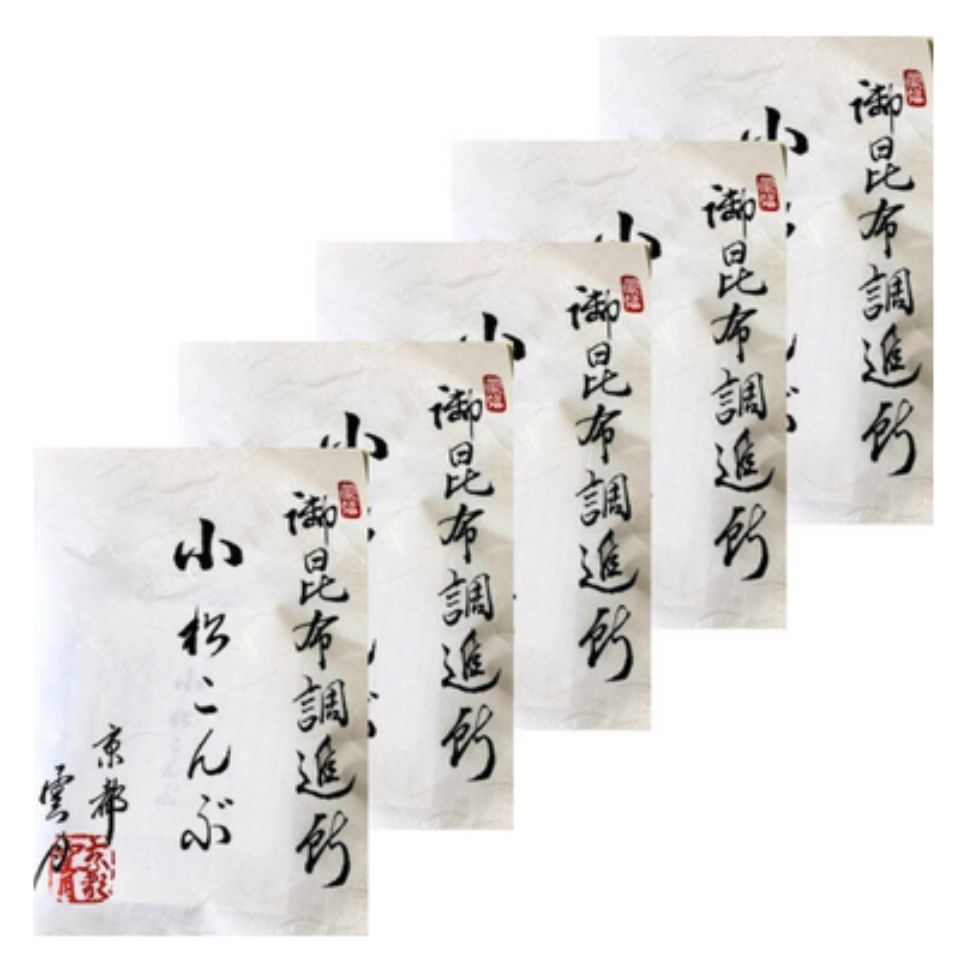 御昆布調進所
小
御昆布調進所
小
御昆布調進所
小
御昆布調進所
小
御昆布調進所
小松こんぶ
京都
雲月